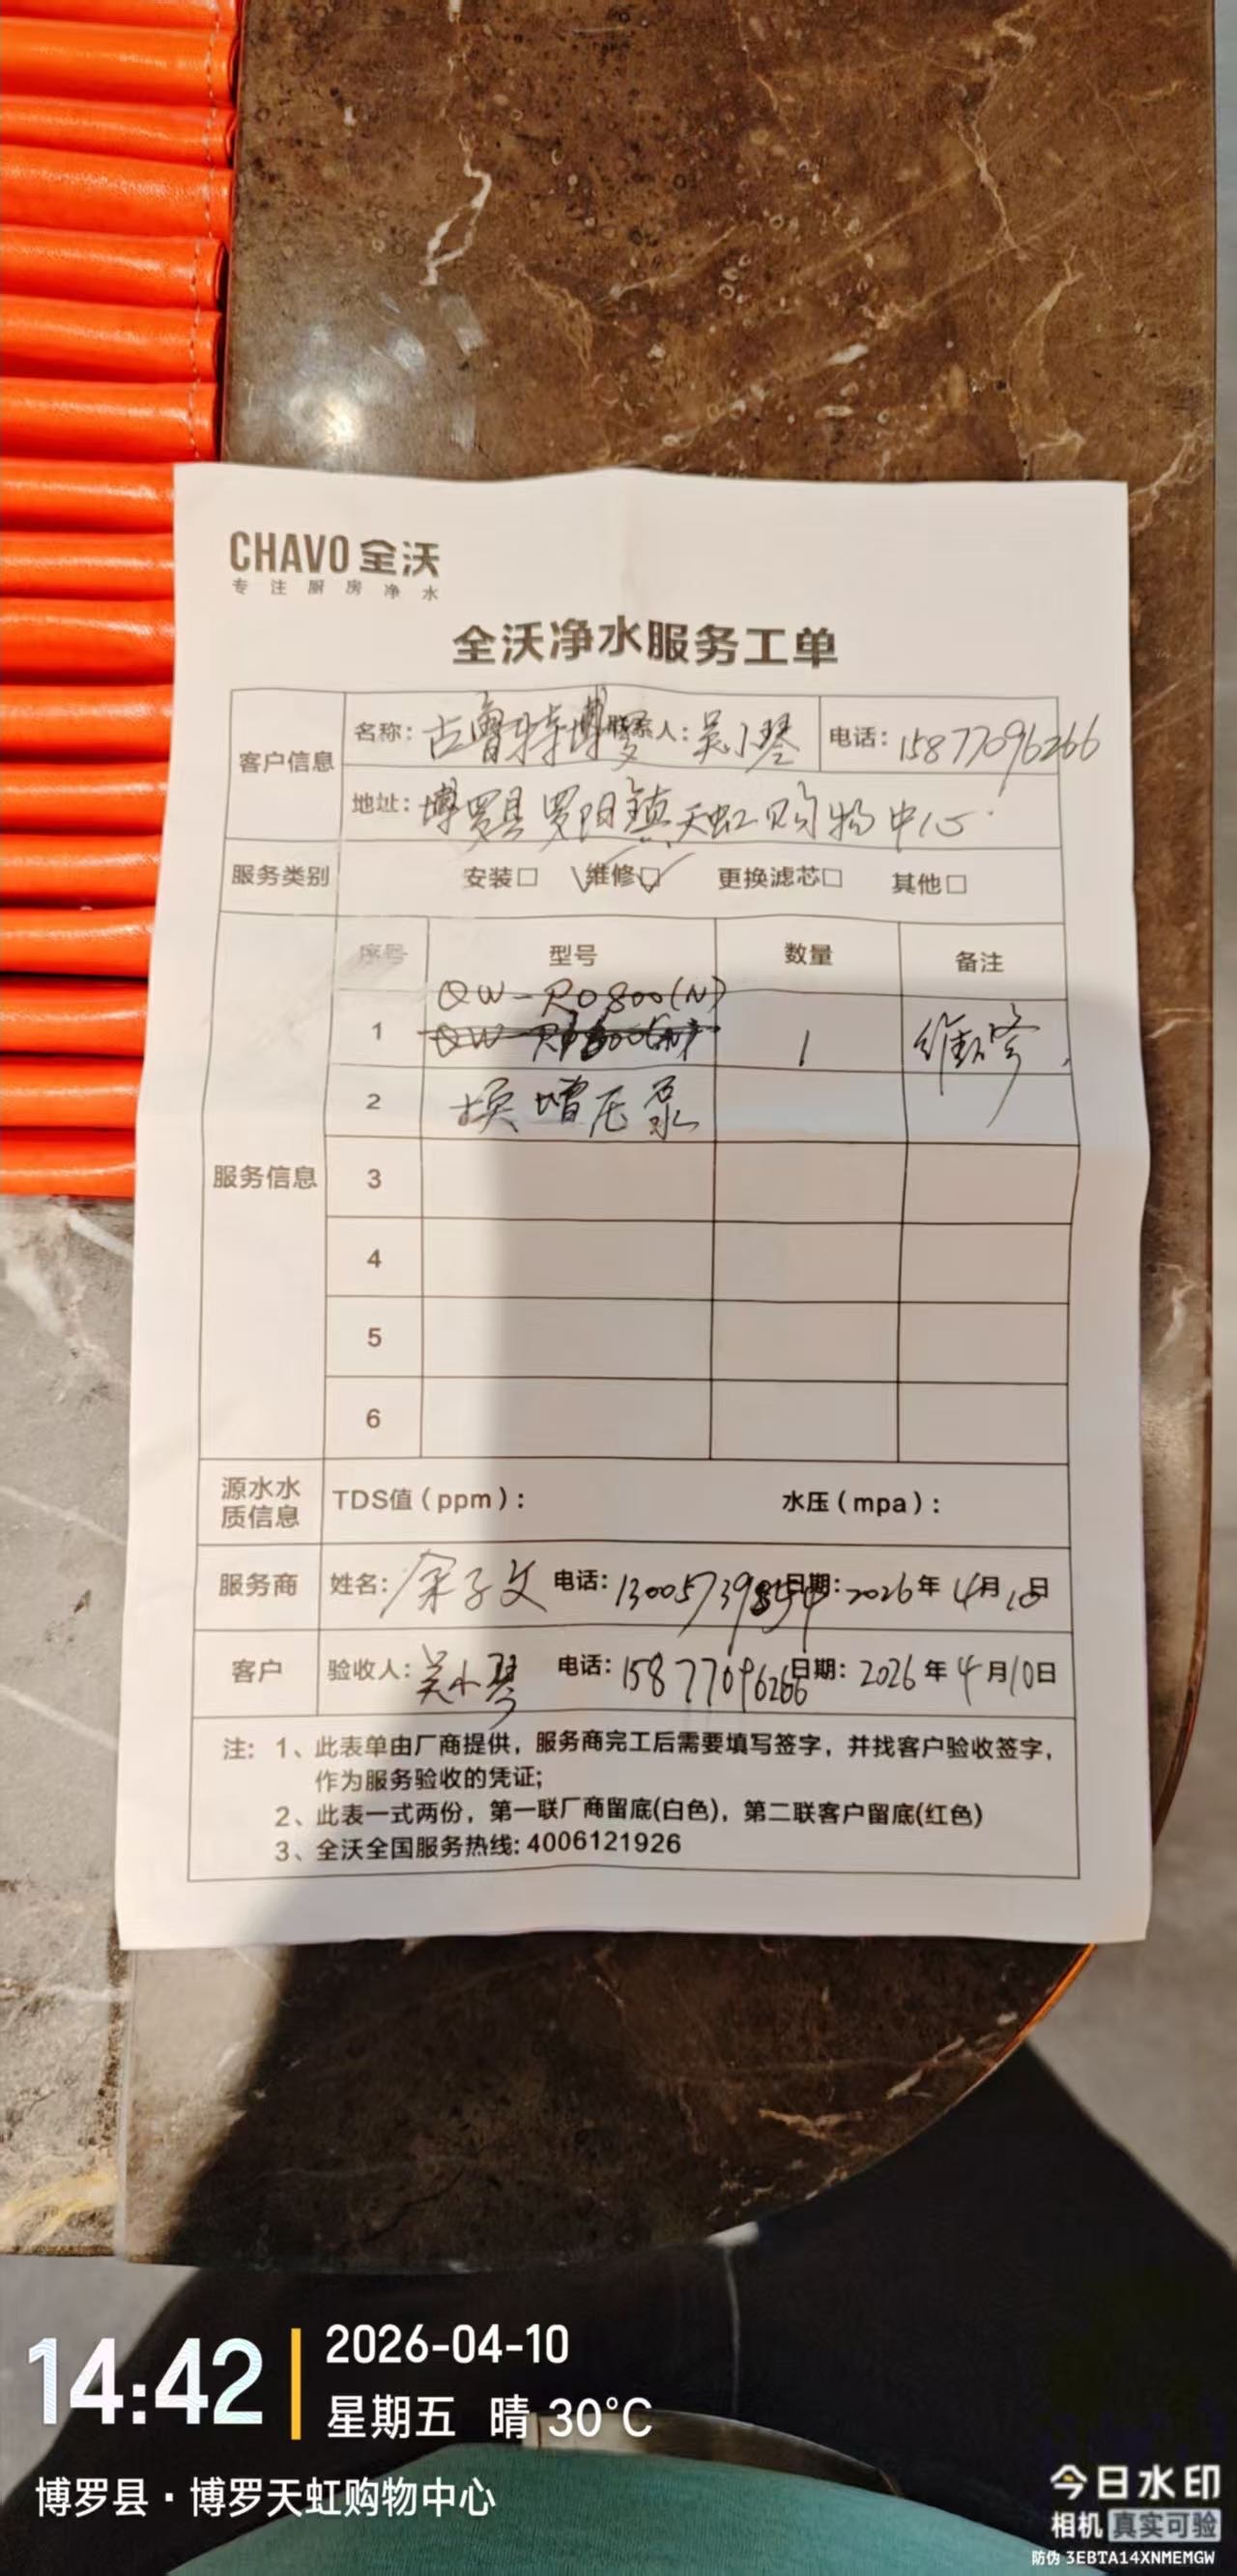 CHAVO 全沃
专注厨房净水
全沃净水服务工单
客户信息 名称：古鲁特博罗 联系人：吴小琴 电话：15877096266
地址：博罗县罗阳镇天虹购物中心
服务类别 安装□ 维修□ 更换滤芯□ 其他□
序号 型号 数量 备注
QW-RO800(N)
1 1 维修
2 换增压泵
服务信息 3
4
5
6
源水水质信息 TDS值（ppm）： 水压（mpa）：
服务商 姓名：余子文 电话： 日期：2026年4月10日
客户 验收人：吴小琴 电话：15877096266 日期：2026年4月10日
注：1、此表单由厂商提供，服务商完工后需要填写签字，并找客户验收签字，
作为服务验收的凭证；
2、此表一式两份，第一联厂商留底(白色)，第二联客户留底(红色)
3、全沃全国服务热线：4006121926
14:42 2026-04-10
星期五 晴 30°C
博罗县·博罗天虹购物中心
今日水印
相机 真实可验
防伪 3EBTA14XNMEMGW